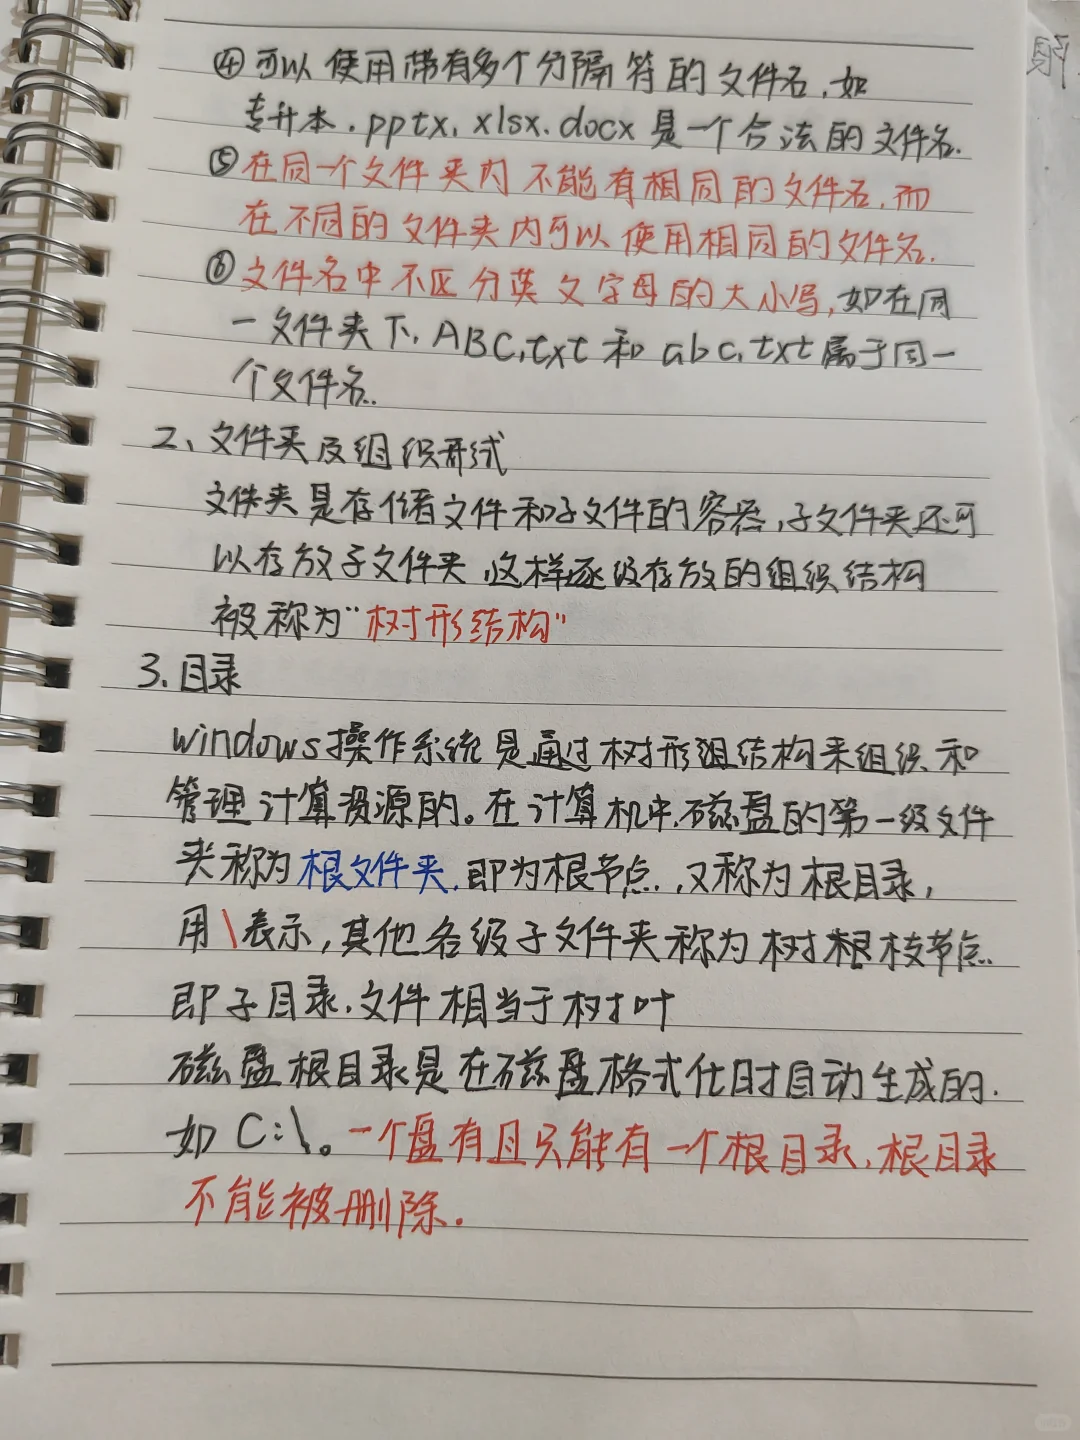 ④可以使用带有多个分隔符的文件名,如
专升本.pptx.xlsx.docx是一个合法的文件名.
⑤在同一个文件夹内不能有相同的文件名,而
在不同的文件夹内可以使用相同的文件名.
⑥文件名中不区分英文字母的大小写,如在同
一文件夹下,ABC.txt和abc.txt属于同一
个文件名.
2、文件夹及组织形式
文件夹是存储文件和子文件的容器,子文件夹还可
以存放子文件夹,这样逐级存放的组织结构
被称为“树形结构”
3.目录
windows操作系统是通过树形组结构来组织和
管理计算资源的。在计算机中,磁盘的第一级文件
夹称为根文件夹,即为根节点,又称为根目录,
用\表示,其他各级子文件夹称为树根枝节点
即子目录.文件相当于树叶
磁盘根目录是在磁盘格式化时自动生成的.
如C:\。一个盘有且只能有一个根目录,根目录
不能被删除.